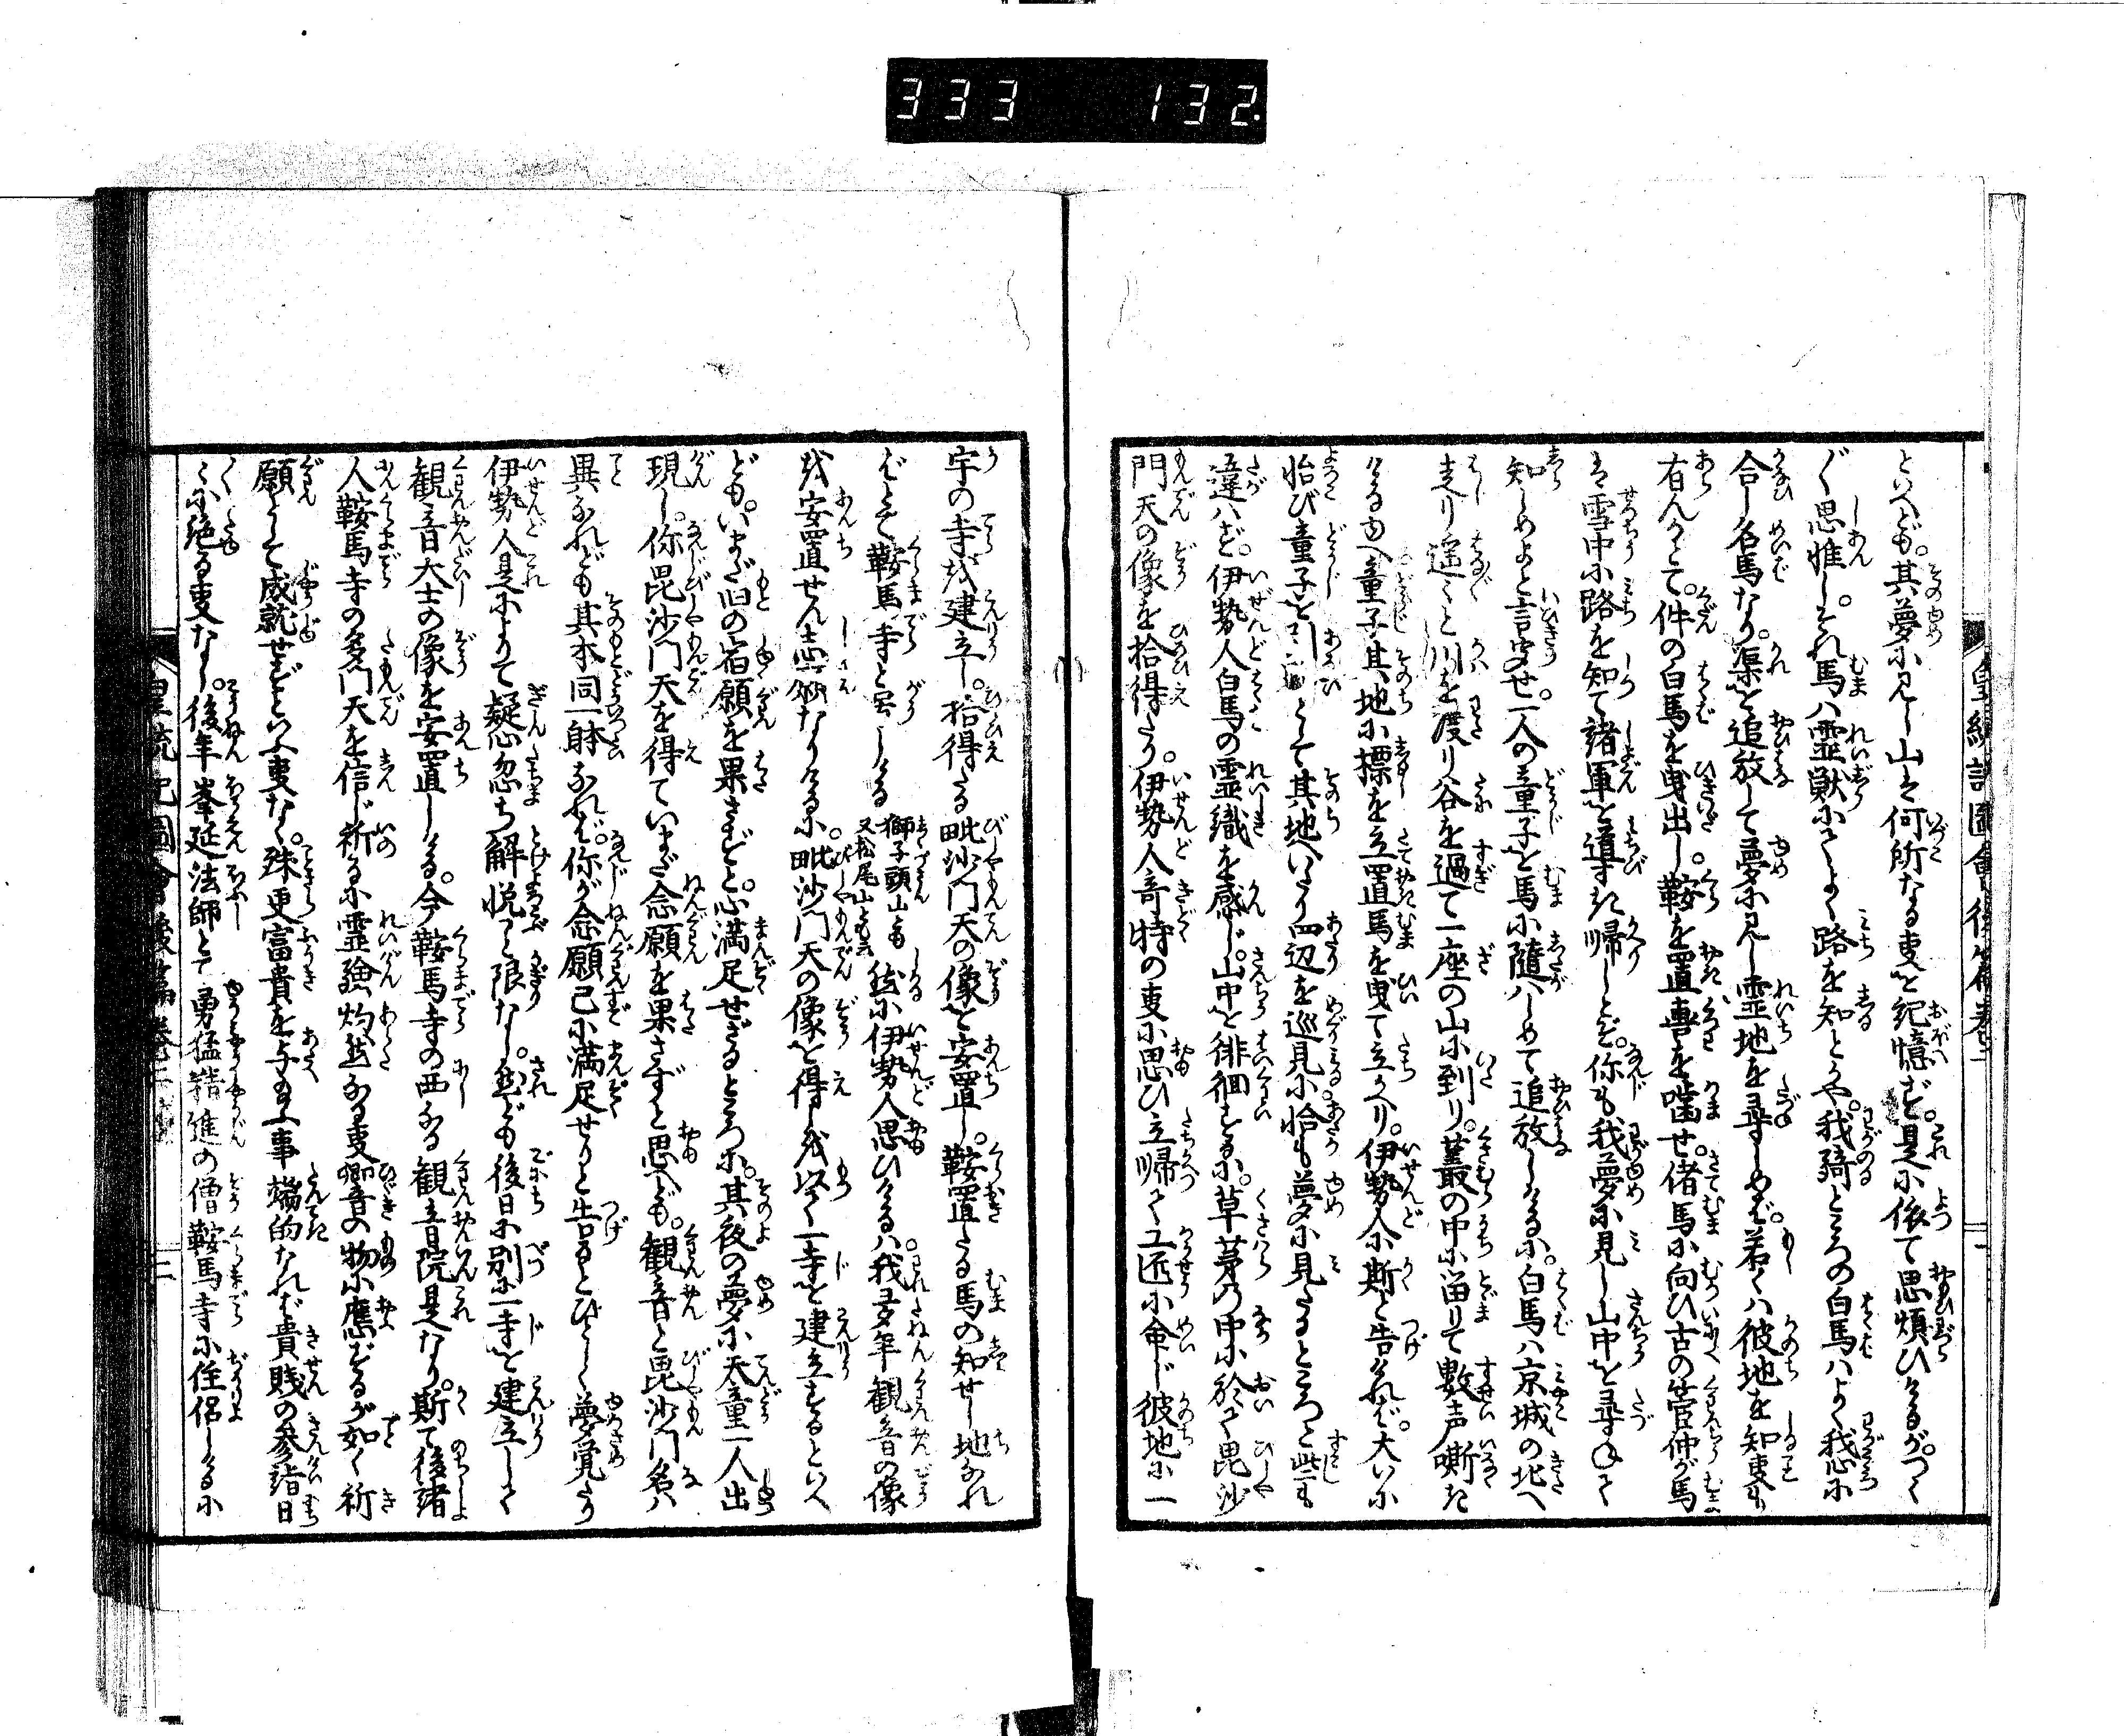 333 132
といへども。其夢に見し山は何所なる事を紀憶ず。是に依て思煩ひけるが。つく
ぐ思惟し。それ馬ハ霊獣にてよく路を知とかや。我騎ところの白馬ハよく我心に
合し名馬なり。渠を追放して夢に見し霊地を尋しめば。若くハ彼地を知事も
有んかとて。件の白馬を曳出し。鞍を置轡を噛せ。偖馬に向ひ古の管仲が馬
は雪中に路を知て諸軍を導き帰しとぞ。你も我夢に見し山中を尋ねて
知しめよと言含せ。一人の童子を馬に随ハしめて追放しけるに。白馬ハ京城の北へ
走り遥々と川を渡り谷を過て一座の山に到り。叢の中に留りて数声嘶き
ける由へ童子其地に標を立置馬を曳て立かへり。伊勢人に斯と告ければ。大いに
怡び童子を引とて其地へいたり四辺を巡見に恰も夢に見たるところと些も
違ハず。伊勢人白馬の霊識を感じ。山中を徘徊するに。草茅の中に於て毘沙
門天の像を拾得たり。伊勢人奇特の事に思ひ立帰て工匠に命じ彼地に一
宇の寺を建立し。拾得たる毗沙門天の像を安置し。鞍置たる馬の知せし地なれ
ばとて鞍馬寺と号しける 獅子頭山とも又松尾山とも云 然に伊勢人思ひけるハ。我多年観音の像
を安置せん志願なりけるに。毗沙門天の像を得しを以て一寺を建立するといへ
ども。いまだ旧の宿願を果さずと。心満足せざるところに。其夜の夢に天童一人出
現し。你毘沙門天を得ていまだ念願を果さずと思へども。観音と毘沙門名ハ
異なれども其本同一躰なれば。你が念願已に満足せりと告るとひとしく夢覚たり
伊勢人是によりて疑心忽ち解悦こと限なし。然ども後日に別に一寺を建立して
観音大士の像を安置しける。今鞍馬寺の西なる観音院是なり。斯て後諸
人鞍馬寺の多門天を信じ祈るに霊験灼然なる事響音の物に應ずるが如く祈
願として成就せずといふ事なく。殊更富貴を与る事端的なれば貴賤の参詣日
々に絶る事なし。後年峯延法師とて勇猛精進の僧鞍馬寺に住侶しけるに